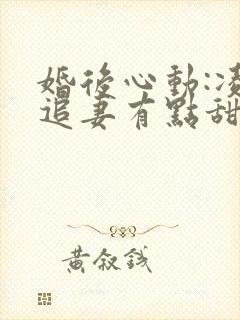 婚後心動:凌
追妻有點甜
黃敘錢